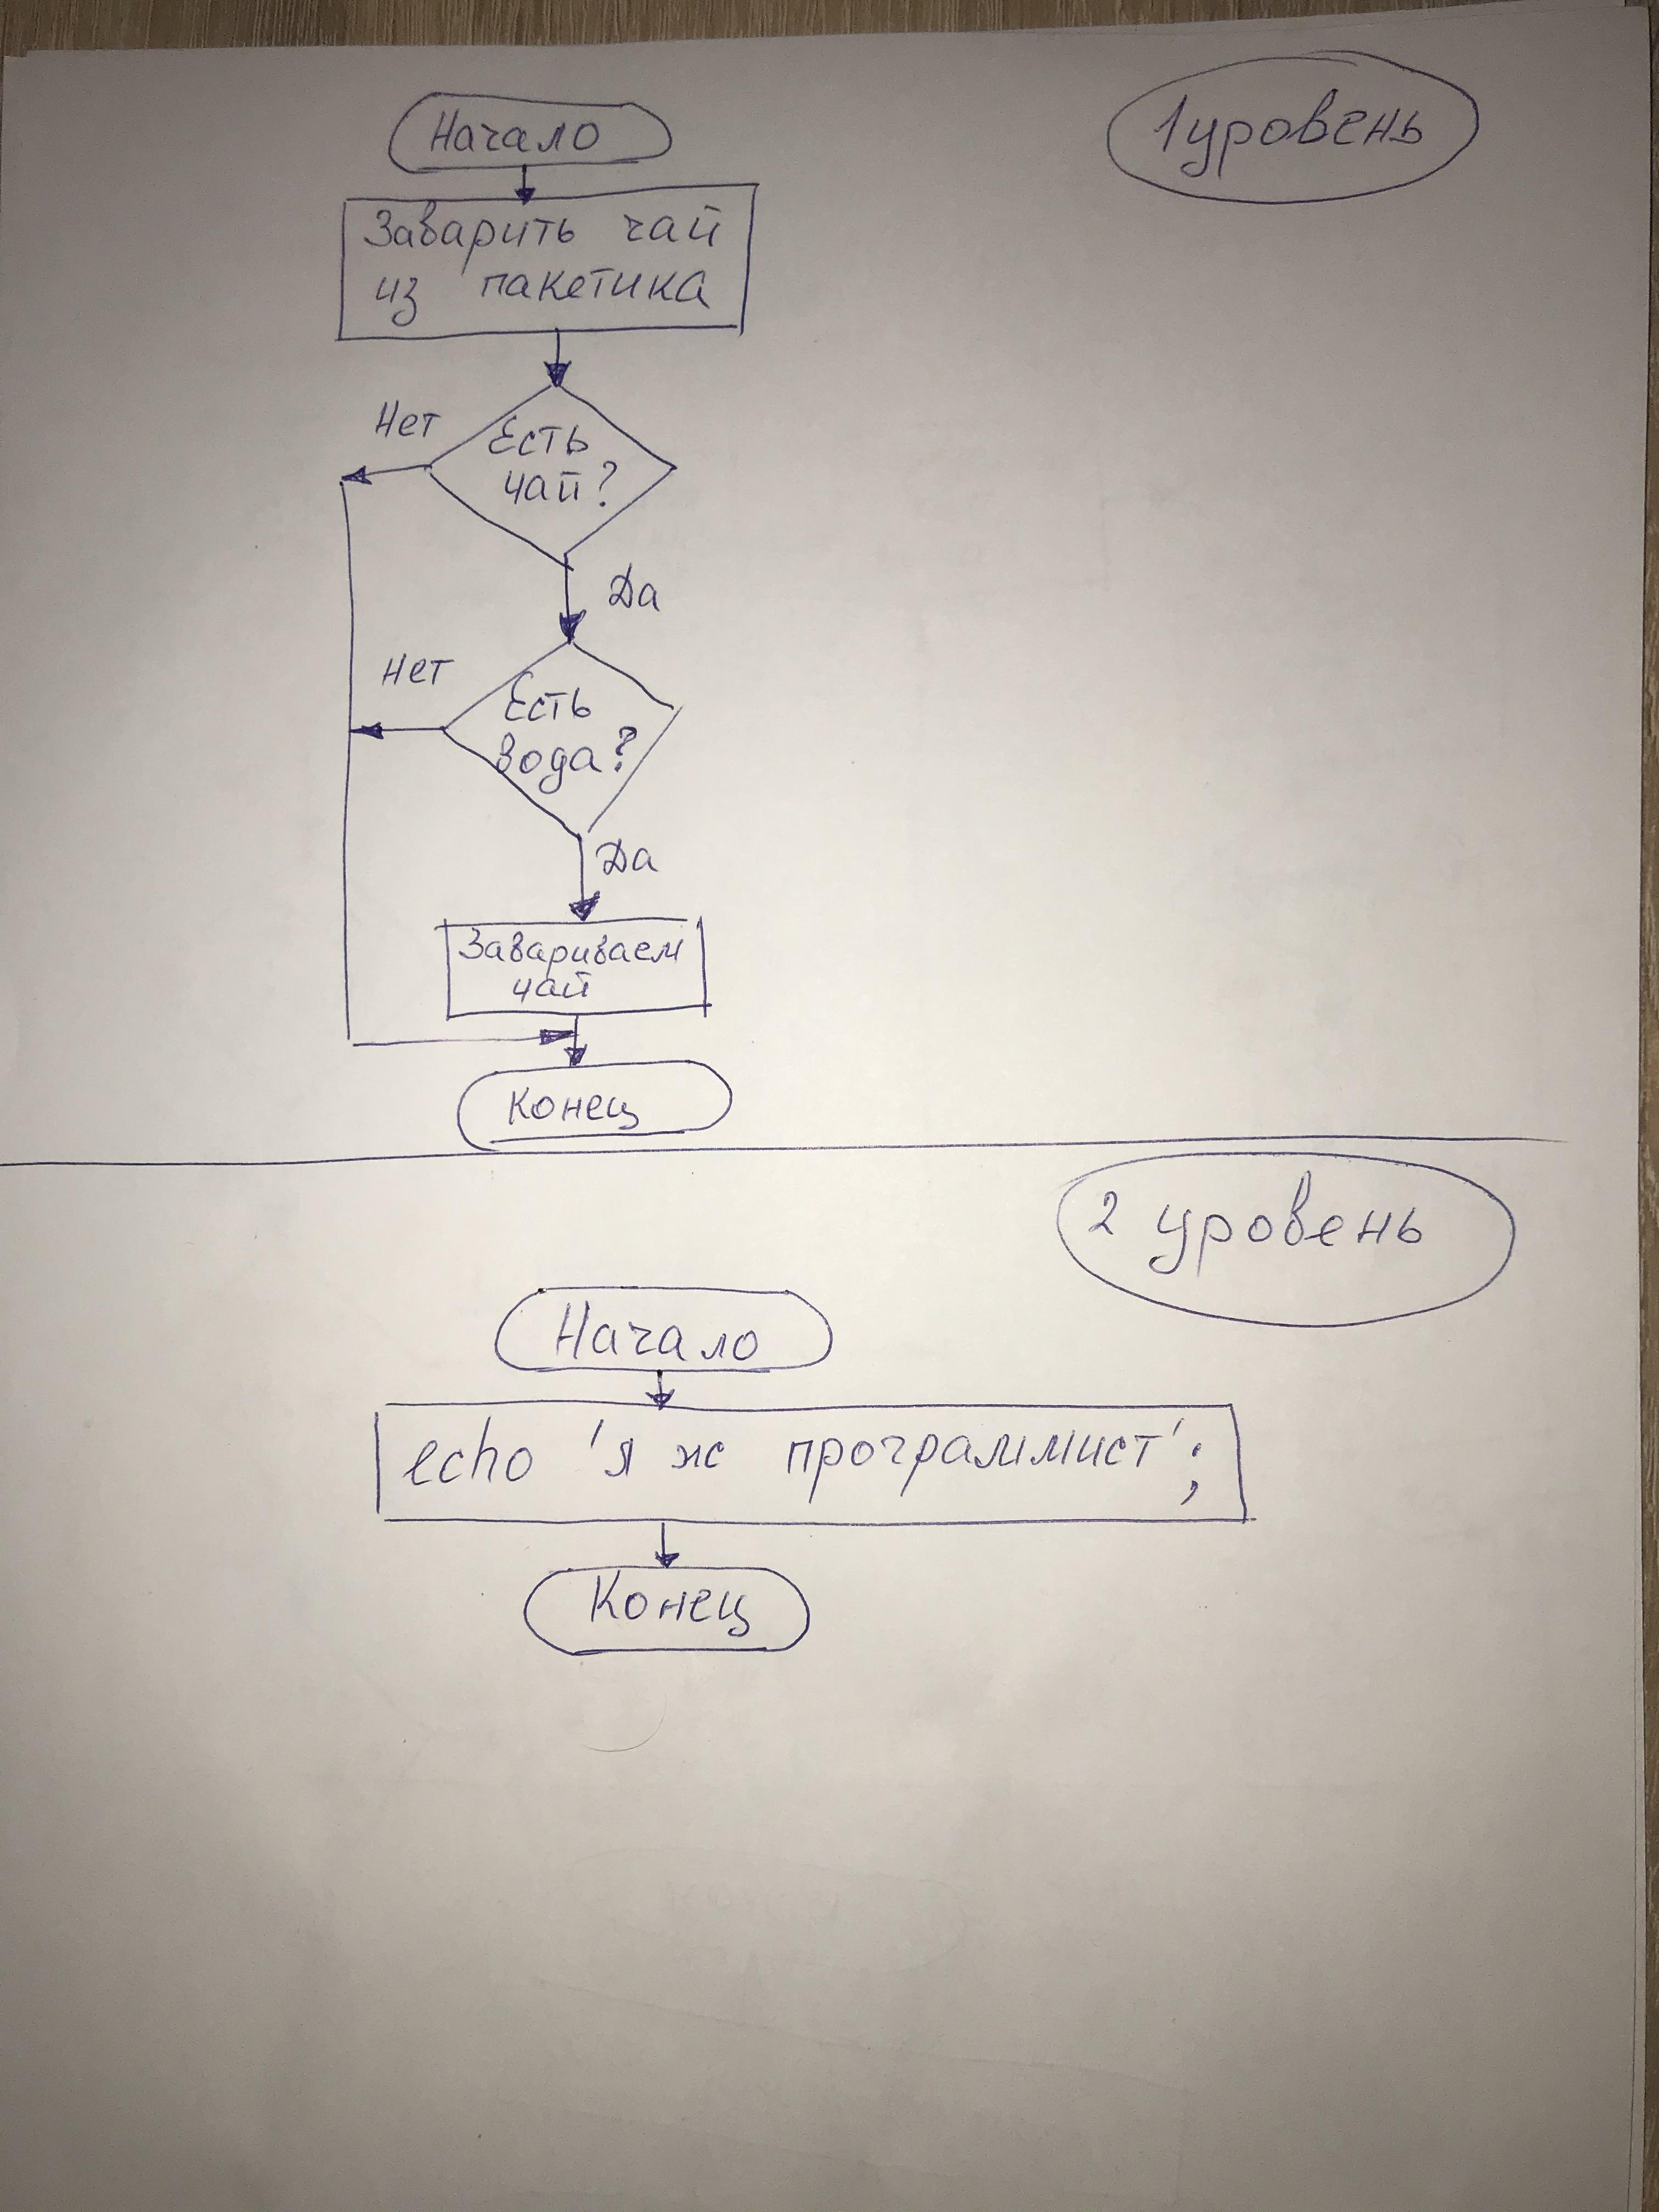 1 уровень
Начало
Заварить чай
из пакетика
Нет
Есть
чай?
Да
Нет
Есть
вода?
Да
Завариваем
чай
Конец
2 уровень
Начало
echo 'я ж программист';
Конец